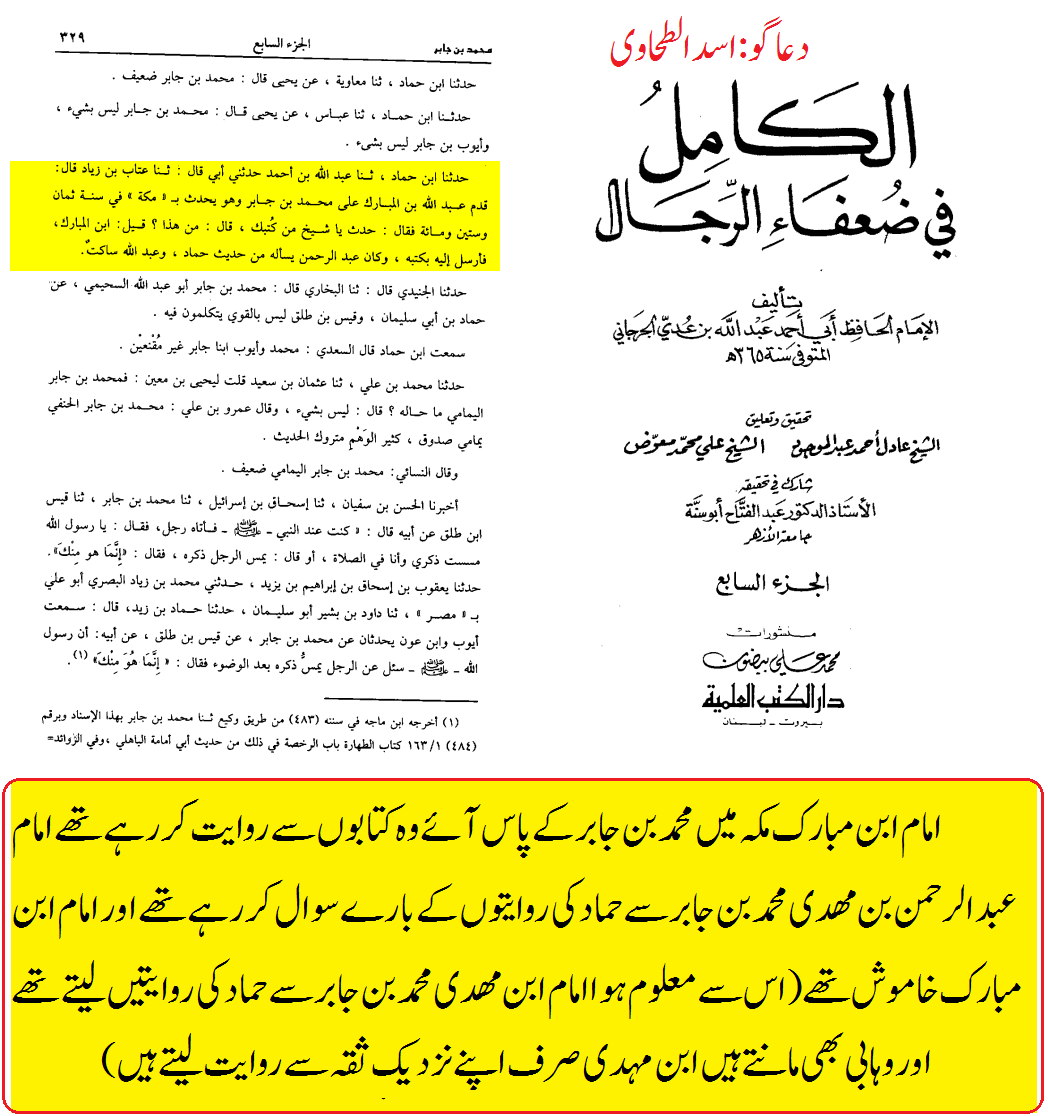 دعا گو: اسد الطحاوی
الكامل
في ضعفاء الرجال
تأليف
الإمام الحافظ أبي أحمد عبد الله بن عدي الجرجاني
المتوفى سنة ٣٦٥ هـ
تحقيق وتعليق
الشيخ عادل أحمد عبد الموجود الشيخ علي محمد معوض
شارك في تحقيقه
الأستاذ الدكتور عبد الفتاح أبو سنة
جامعة الأزهر
الجزء السابع
منشورات
محمد علي بيضون
دار الكتب العلمية
بيروت - لبنان
محمد بن جابر الجزء السابع ٣٢٩
حدثنا ابن حماد ، ثنا معاوية ، عن يحيى قال : محمد بن جابر ضعيف .
حدثنا ابن حماد ، ثنا عباس ، عن يحيى قال : محمد بن جابر ليس بشيء ،
وأيوب بن جابر ليس بشىء .
حدثنا ابن حماد ، ثنا عبد الله بن أحمد حدثني أبي قال : ثنا عتاب بن زياد قال:
قدم عبد الله بن المبارك على محمد بن جابر وهو يحدث بـ « مكة » في سنة ثمان
وستين ومائة فقال : حدث يا شيخ من كُتبك ، قال : من هذا ؟ قيل: ابن المبارك،
فأرسل إليه بكتبه ، وكان عبد الرحمن يسأله من حديث حماد ، وعبد الله ساكتٌ.
حدثنا الجنيدي قال : ثنا البخاري قال : محمد بن جابر أبو عبد الله السحيمي ، عن
حماد بن أبي سليمان ، وقيس بن طلق ليس بالقوي يتكلمون فيه .
سمعت ابن حماد قال السعدي : محمد وأيوب ابنا جابر غير مُقْنعيْن .
حدثنا محمد بن علي ، ثنا عثمان بن سعيد قلت ليحيى بن معين : فمحمد بن جابر
اليمامي ما حاله ؟ قال : ليس بشيء ، وقال عمرو بن علي : محمد بن جابر الحنفي
يمامي صدوق ، كثير الوَهْم متروك الحديث .
وقال النسائي: محمد بن جابر اليمامي ضعيف .
أخبرنا الحسن بن سفيان ، ثنا إسحاق بن إسرائيل ، ثنا محمد بن جابر ، ثنا قيس
ابن طلق عن أبيه قال : « كنت عند النبي ـ ﷺ ـ فأتاه رجل، فقال : يا رسول الله
مسست ذكري وأنا في الصلاة ، أو قال : يمس الرجل ذكره ، فقال : «إِنَّمَا هو مِنْكَ».
حدثنا يعقوب بن إسحاق بن إبراهيم بن يزيد ، حدثني محمد بن زياد البصري أبو علي
بـ « مصر » ، ثنا داود بن بشير أبو سليمان ، حدثنا حماد بن زيد، قال : سمعت
أيوب وابن عون يحدثان عن محمد بن جابر ، عن قيس بن طلق ، عن أبيه: أن رسول
الله ـ ﷺ ـ سئل عن الرجل يمسُّ ذكره بعد الوضوء فقال : « إِنَّمَا هُوَ مِنْكَ» (١).
(١) أخرجه ابن ماجه في سننه (٤٨٣) من طريق وكيع ثنا محمد بن جابر بهذا الإسناد وبرقم
(٤٨٤) ١٦٣/١ كتاب الطهارة باب الرخصة في ذلك من حديث أبي أمامة الباهلي ،وفي الزوائد=
امام ابن مبارک مکہ میں محمد بن جابر کے پاس آئے وہ کتابوں سے روایت کر رہے تھے امام
عبد الرحمن بن مھدی محمد بن جابر سے حماد کی روایتوں کے بارے سوال کر رہے تھے اور امام ابن
مبارک خاموش تھے (اس سے معلوم ہوا امام ابن مھدی محمد بن جابر سے حماد کی روایتیں لیتے تھے
اور وہابی بھی مانتے ہیں ابن مہدی صرف اپنے نزدیک ثقہ سے روایت لیتے ہیں)